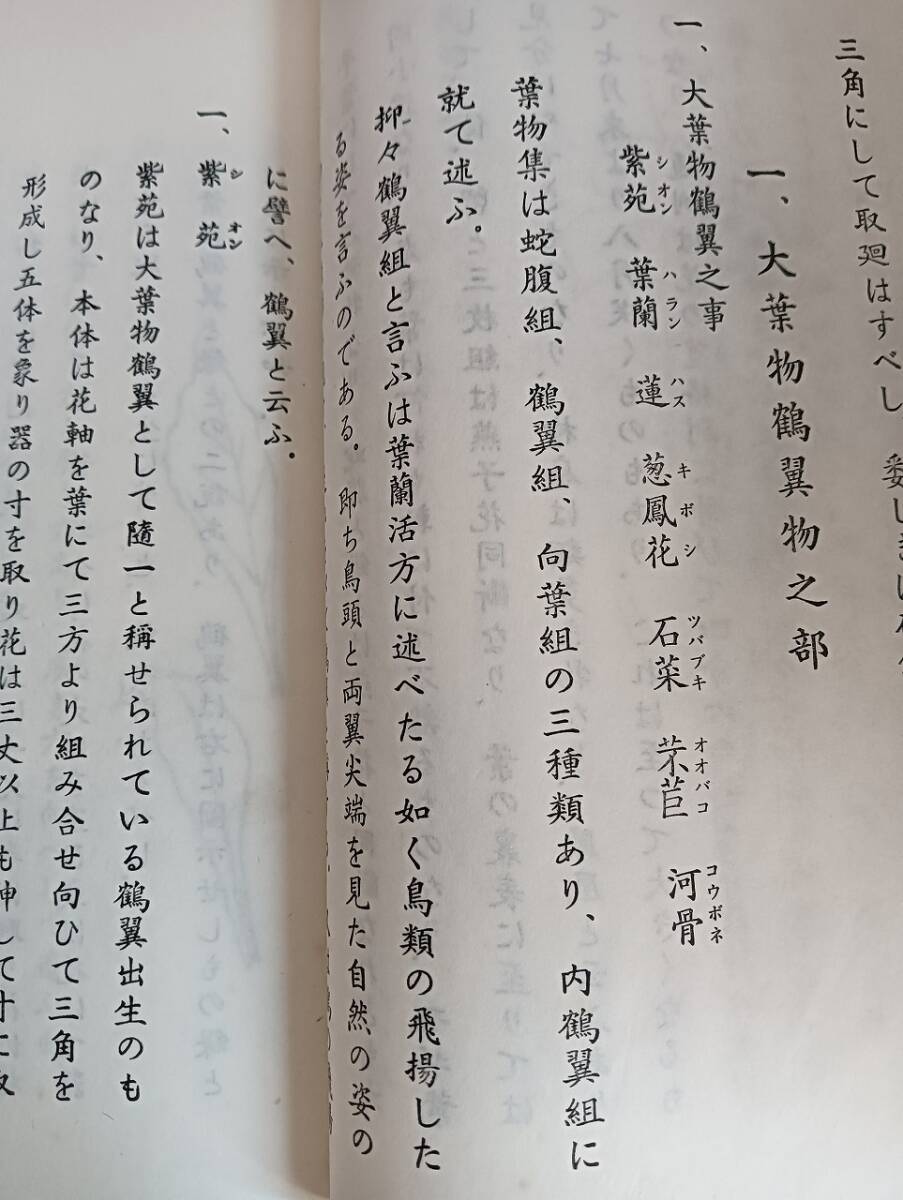 三角にして取廻はすべし
一、大葉物鶴翼物之部
一、大葉物鶴翼之事
紫苑 葉蘭 蓮 葱鳳花 石菜 芣苢 河骨
シオン ハラン ハス キボシ ツバブキ オオバコ コウボネ
葉物集は蛇腹組、鶴翼組、向葉組の三種類あり、内鶴翼組に
就て述ふ。
抑々鶴翼組と言ふは葉蘭活方に述べたる如く鳥類の飛揚した
る姿を言ふのである。即ち鳥頭と両翼尖端を見た自然の姿の
に譬へ、鶴翼と云ふ。
一、紫苑
シオン
紫苑は大葉物鶴翼として隨一と稱せられている鶴翼出生のも
のなり、本体は花軸を葉にて三方より組み合せ向ひて三角を
形成し五体を象り器の寸を取り花は三丈以上も伸して寸に